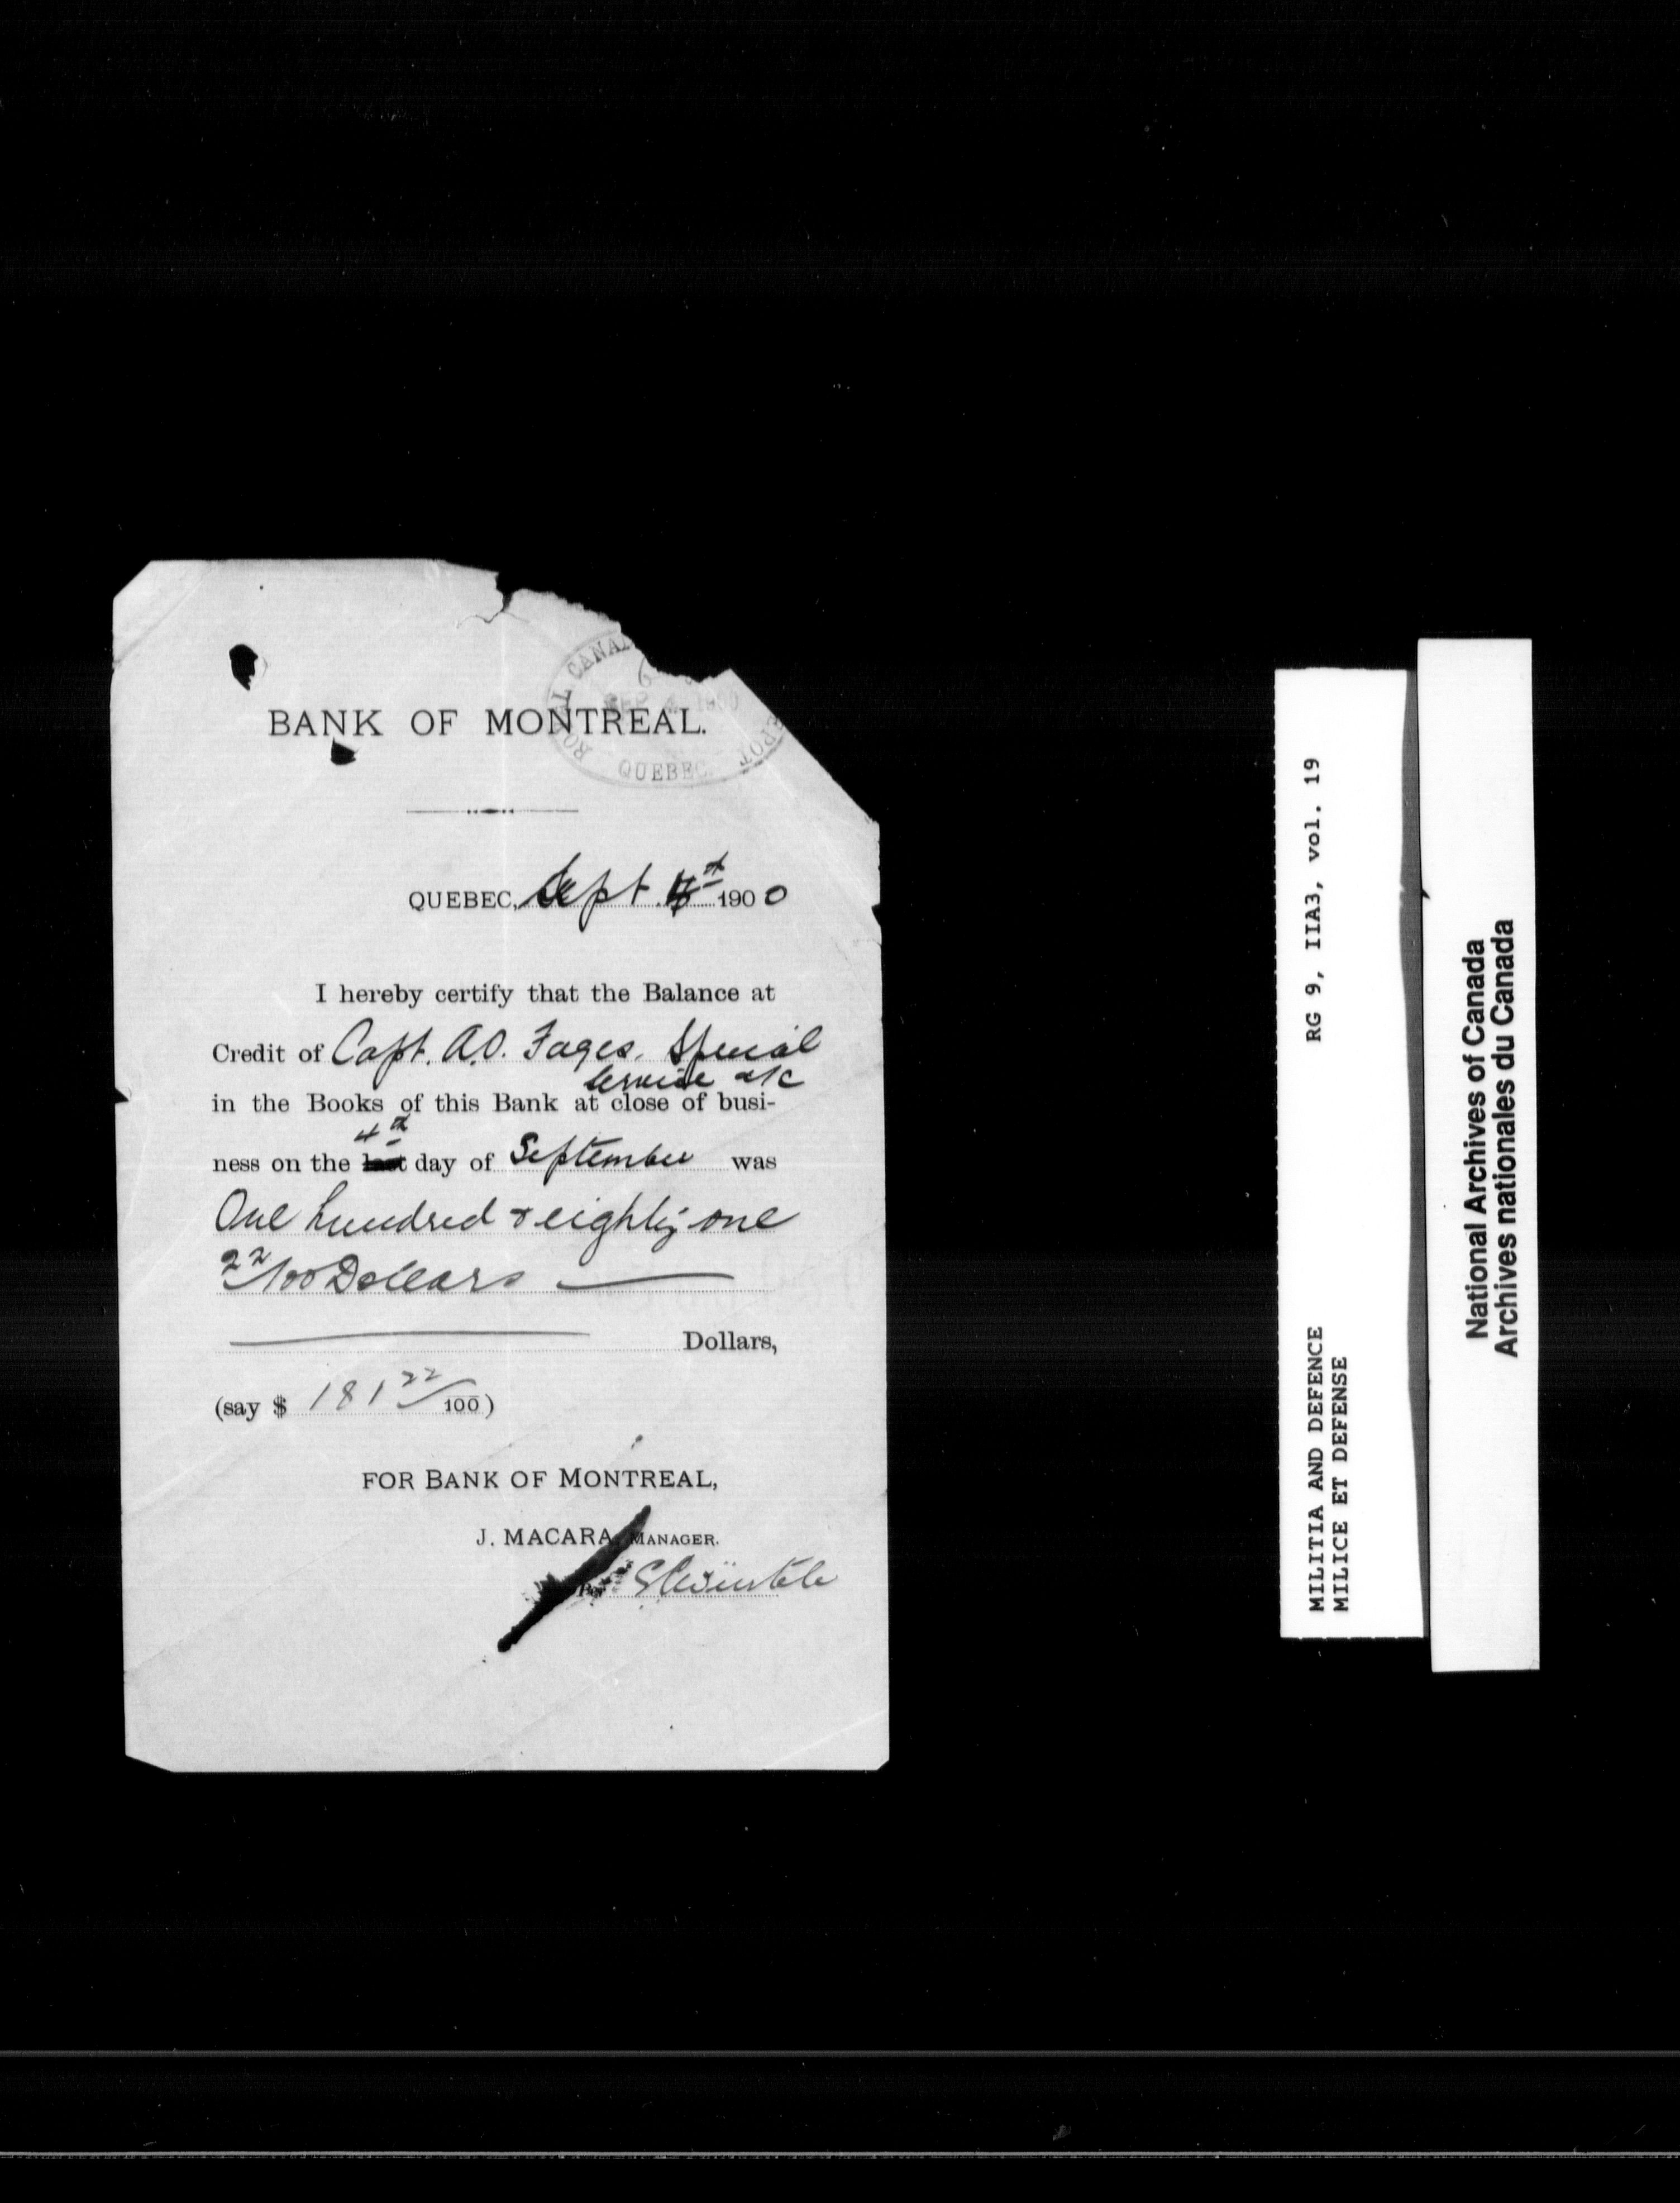 ROYAL CANA
SEP 4 1900
EPOT
QUEBEC
BANK OF MONTREAL.
QUEBEC, Sept. 4th 1900
I hereby certify that the Balance at
Credit of Capt. A.O. Fages. Special
Service a/c
in the Books of this Bank at close of busi-
4th
ness on the last day of September was
One hundred & eighty one
22/100 Dollars
Dollars,
(say $ 181 22/100)
FOR BANK OF MONTREAL,
J. MACARA, MANAGER.
Per
RG 9, IIA3, vol. 19
MILITIA AND DEFENCE
MILICE ET DEFENSE
National Archives of Canada
Archives nationales du Canada